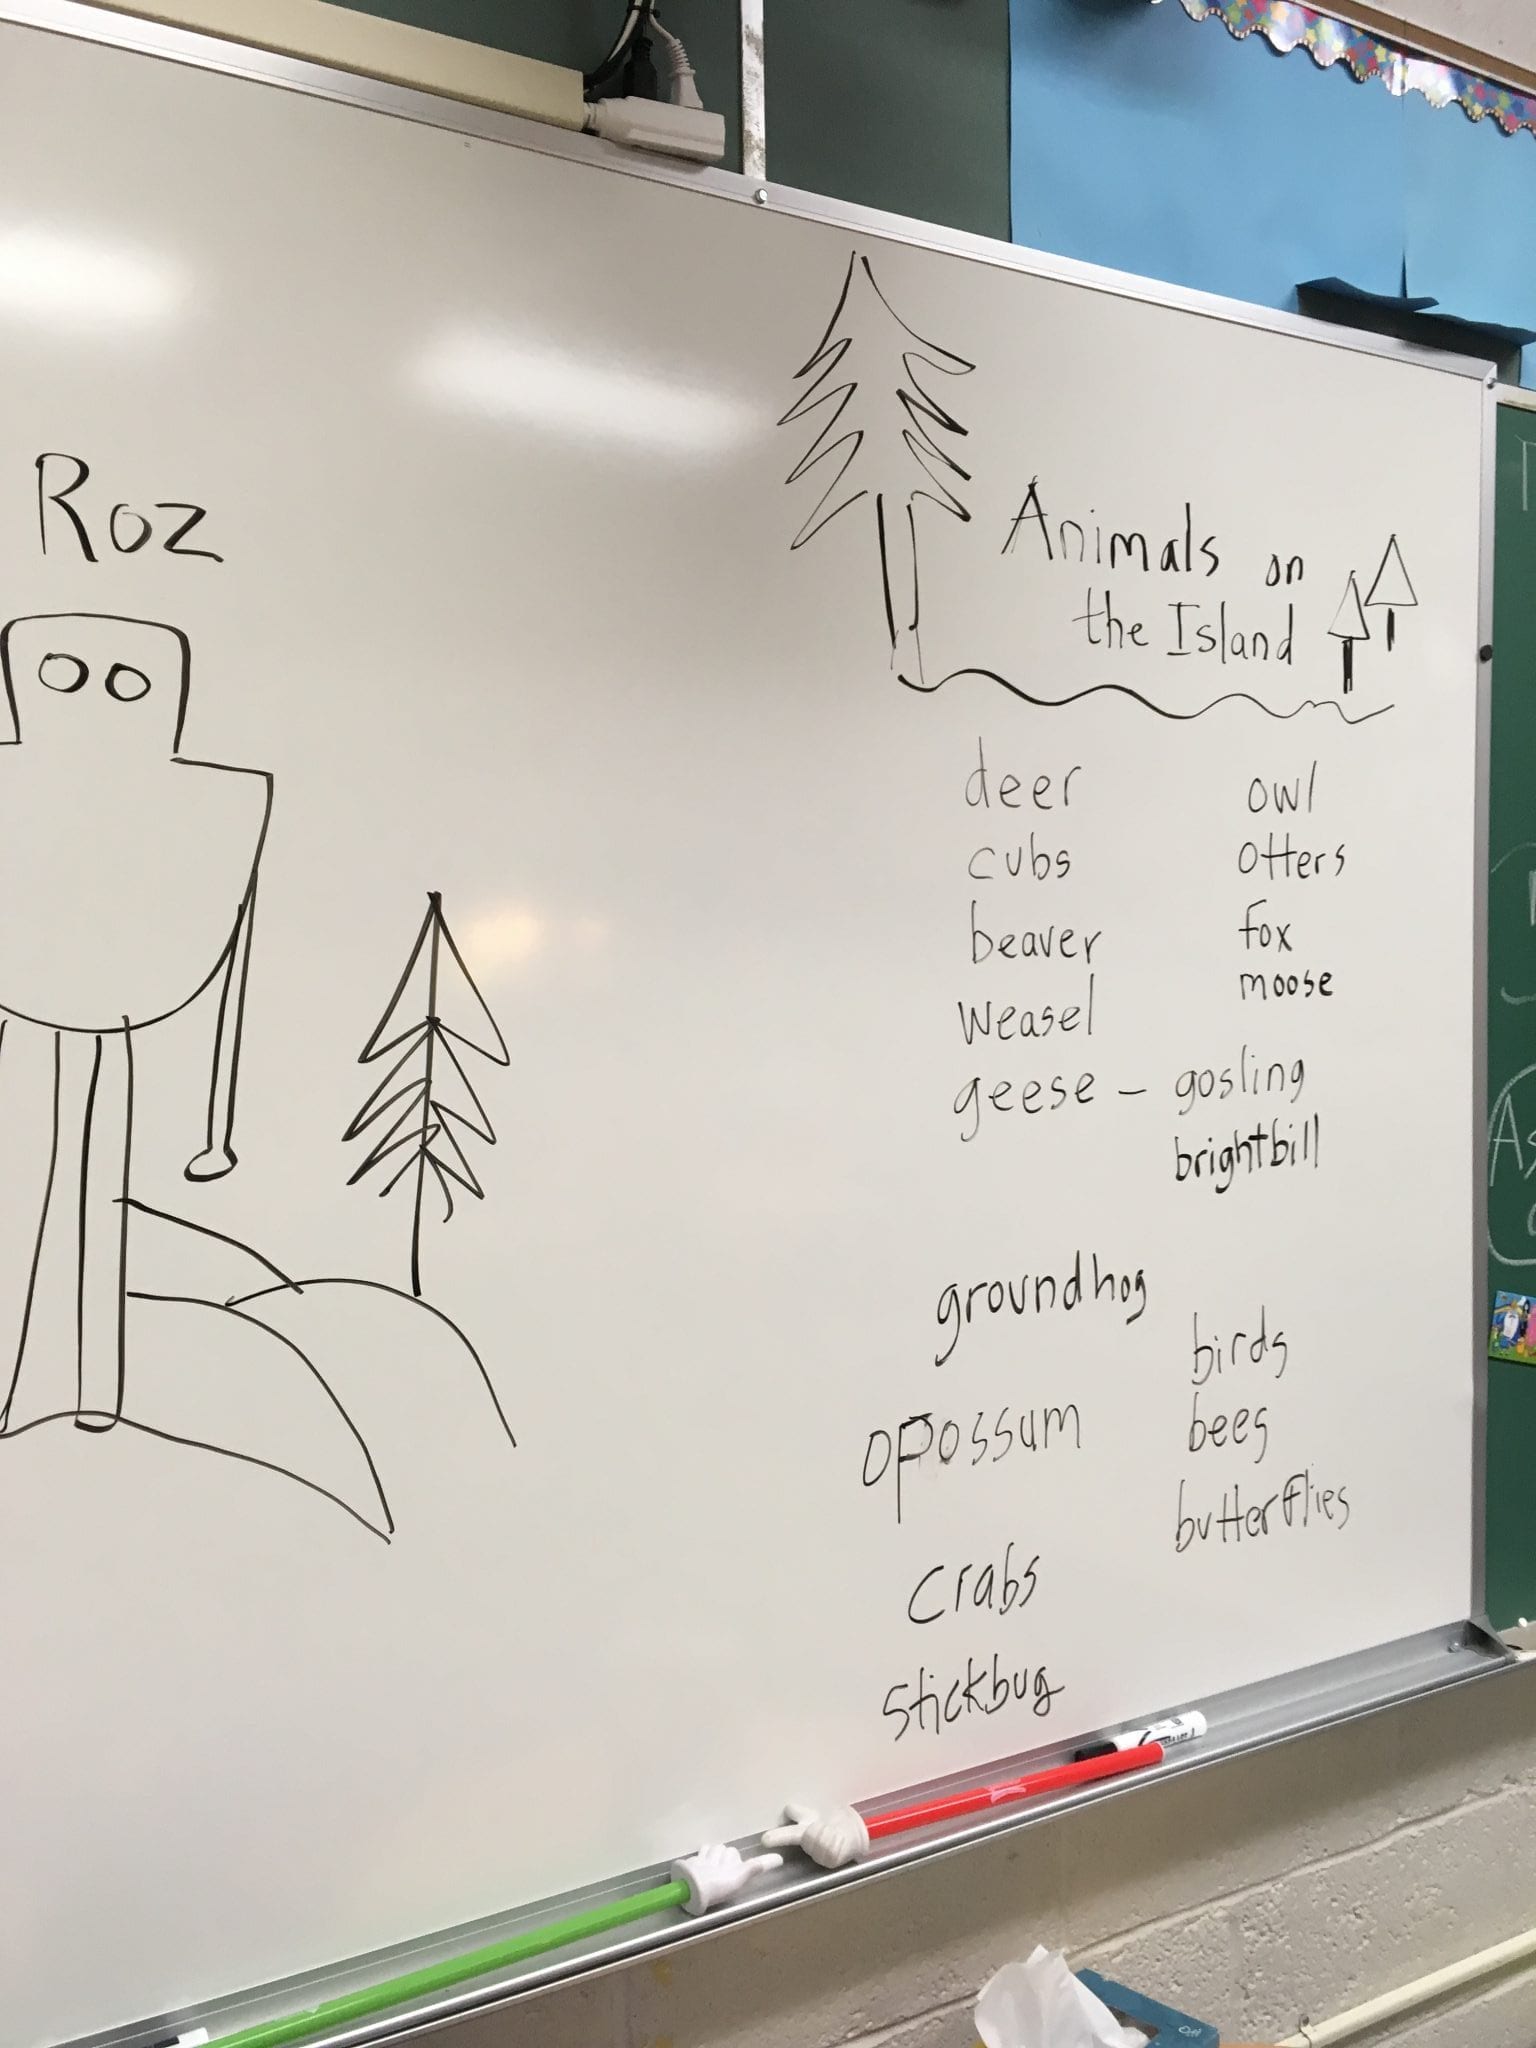 Roz
Animals on
the Island
deer
cubs
beaver
weasel
geese - gosling
brightbill
owl
otters
fox
moose
groundhog
opossum
crabs
stickbug
birds
bees
butterflies